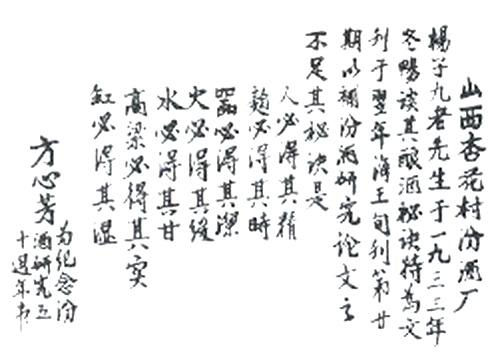 山西杏花村汾酒厂
楊子九老先生于一九三三年
冬暢谈其釀酒秘诀特為文
刊于翌年海王旬刊第廿
期以補汾酒研究論文之
不足其秘诀是
人必得其精
麯必得其時
器必得其潔
火必得其缓
水必得其甘
高粱必得其实
缸必得其湿
方心芳
为纪念汾
酒研究五
十週年书